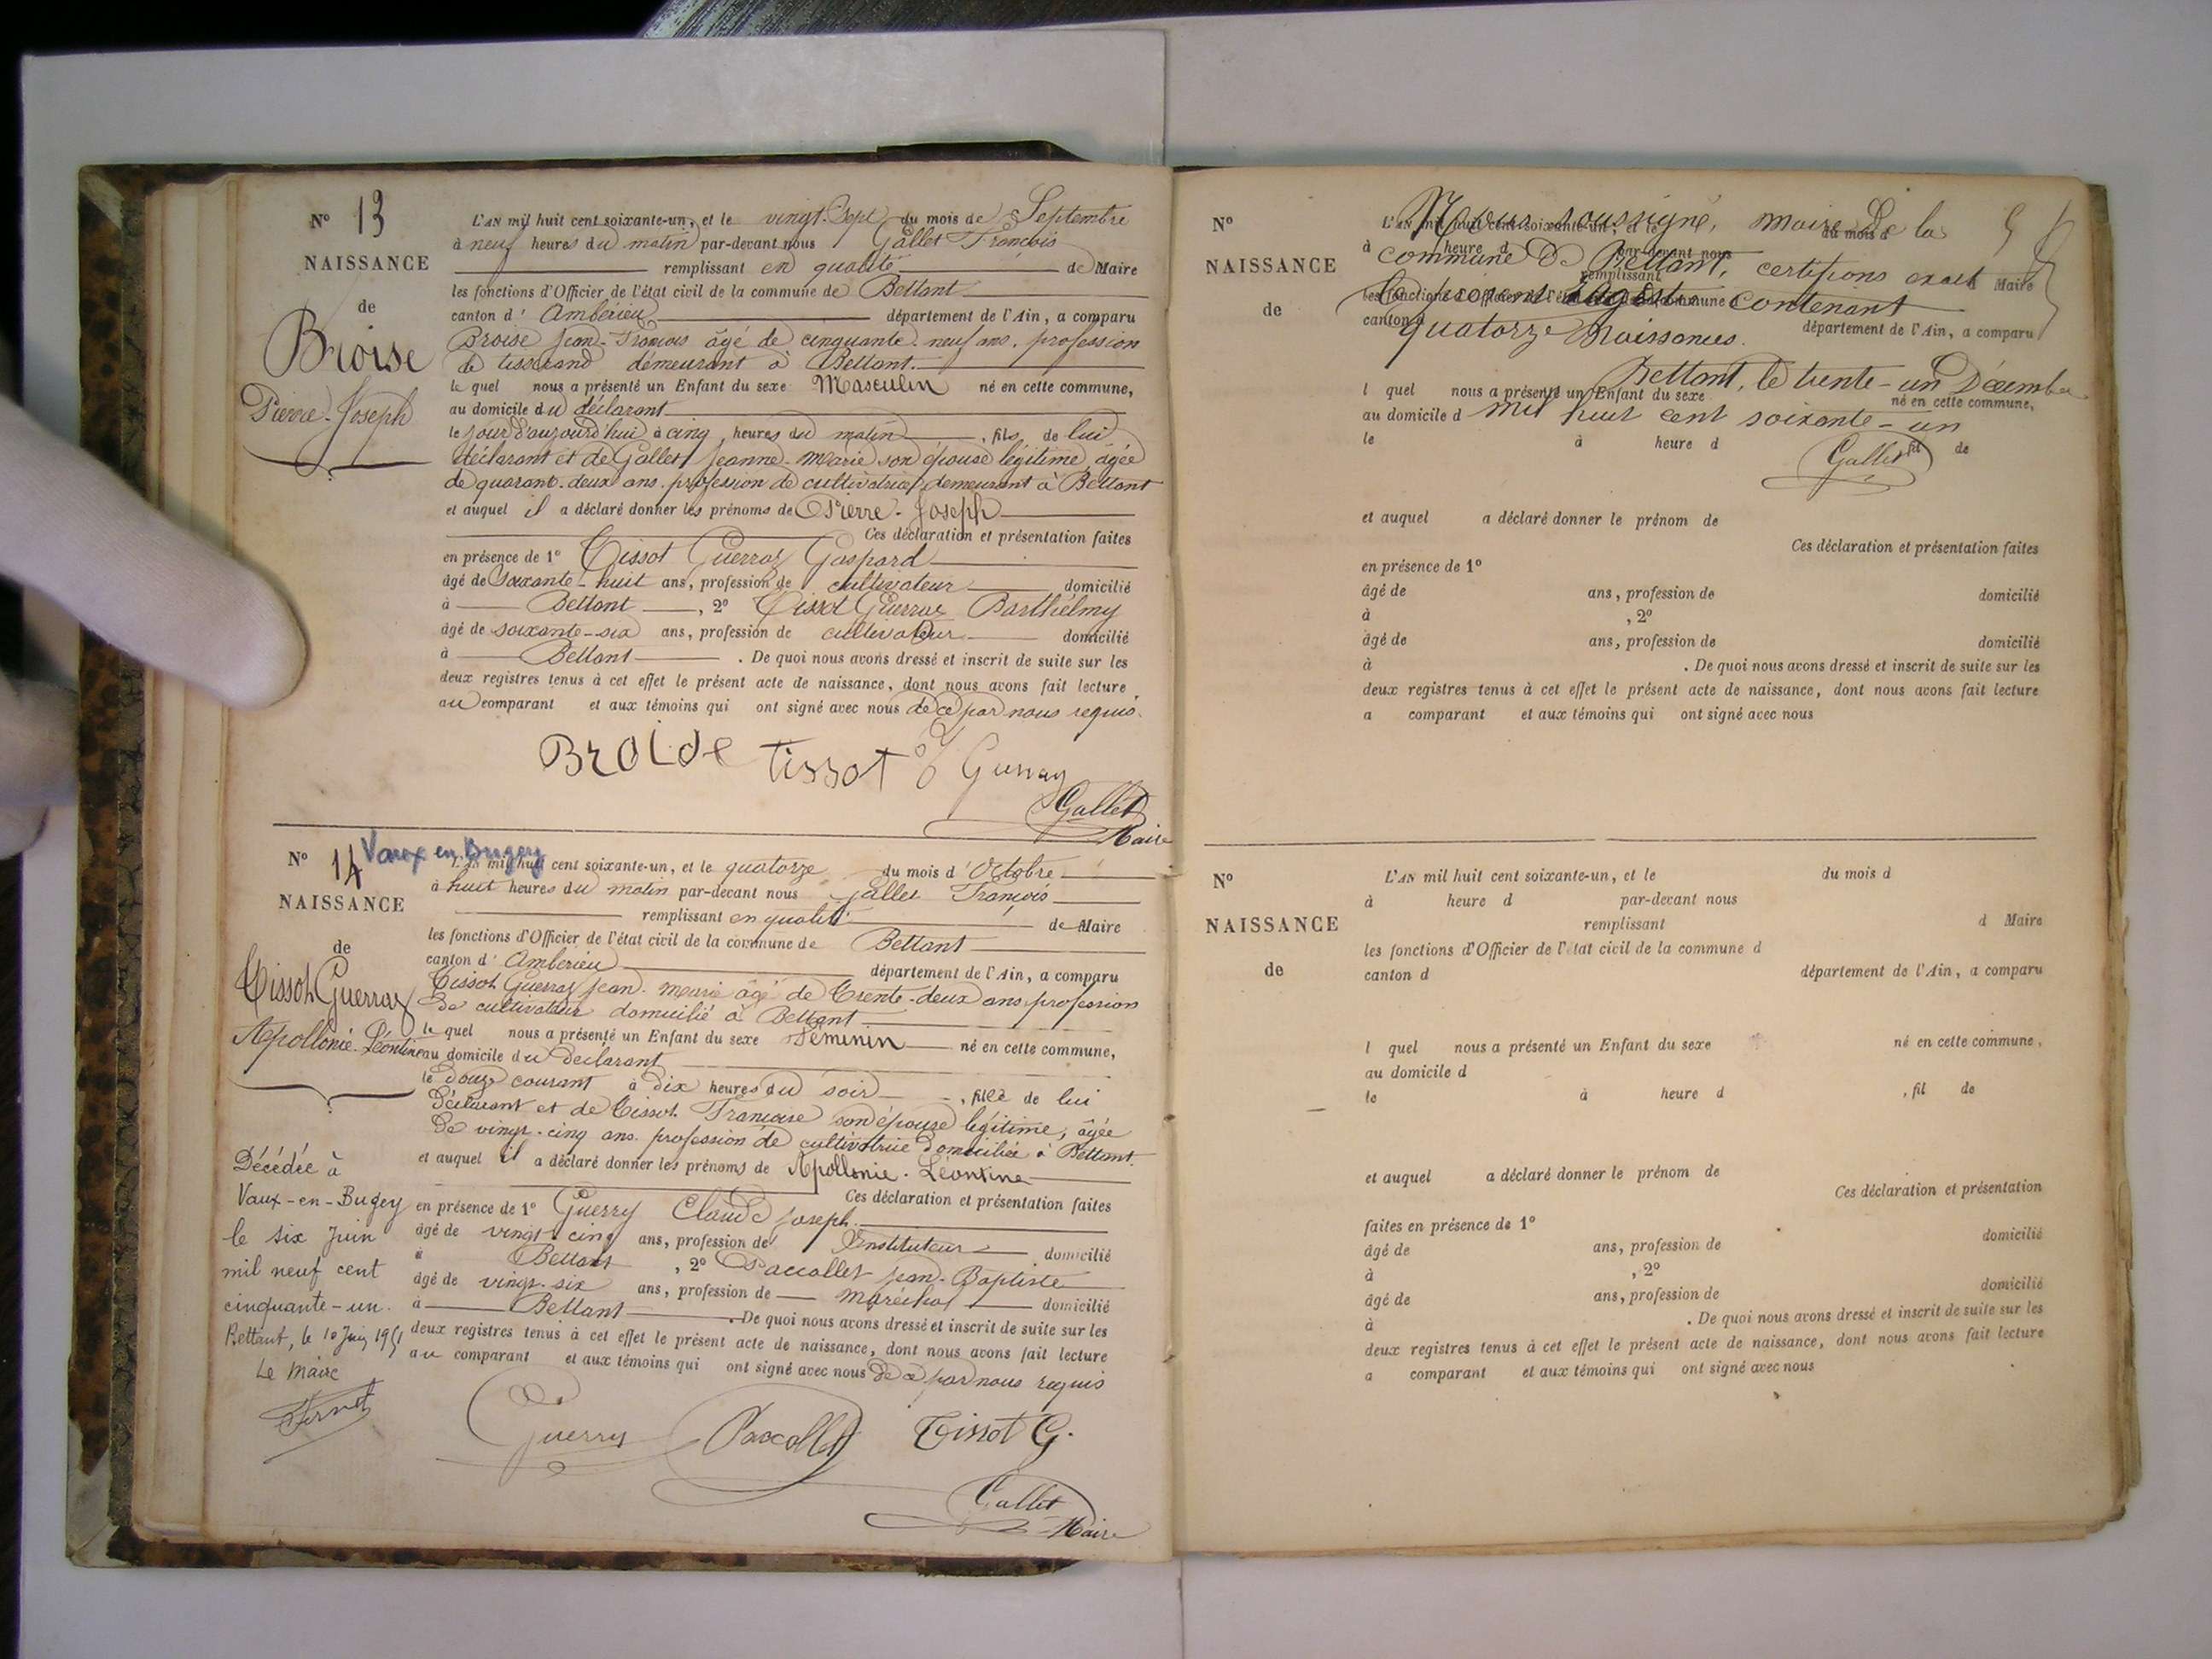 N° 13
NAISSANCE
de
Broise
Pierre-Joseph
L'AN mil huit cent soixante-un, et le vingt-Sept du mois de Septembre
à neuf heures du matin par-devant nous Gallet François
remplissant en qualité de Maire
les fonctions d'Officier de l'état civil de la commune de Bettant
canton d' Ambérieu département de l'Ain, a comparu
Broise Jean-François âgé de cinquante-neuf ans, profession
de tisserand démeurant à Bettant.
le quel nous a présenté un Enfant du sexe Masculin né en cette commune,
au domicile du déclarant
le jour d'aujourd'hui à cinq heures du matin, fils de lui
déclarant et de Gallet Jeanne-Marie son épouse légitime, âgée
de quarant-deux ans, profession de cultivatrice, demeurant à Bettant
et auquel il a déclaré donner les prénoms de Pierre-Joseph
Ces déclaration et présentation faites
en présence de 1° Tissot Guerraz Gaspard
âgé de Soixante-huit ans, profession de cultivateur domicilié
à Bettant, 2° Tissot Guerraz Barthélmy
âgé de soixante-six ans, profession de cultivateur domicilié
à Bettant. De quoi nous avons dressé et inscrit de suite sur les
deux registres tenus à cet effet le présent acte de naissance, dont nous avons fait lecture
au comparant et aux témoins qui ont signé avec nous de ce par nous requis.
Broide tissot
Gallet
Maire
N° 14 Vaux en Bugey
NAISSANCE
de
Tissot Guerraz
Apollonie-Léontine
L'AN mil huit cent soixante-un, et le quatorze du mois d'Octobre
à huit heures du matin par-devant nous Gallet François
remplissant en qualité de Maire
les fonctions d'Officier de l'état civil de la commune de Bettant
canton d' Ambérieu département de l'Ain, a comparu
Tissot Guerraz Jean-Marie âgé de Trente-deux ans, profession
de cultivateur domicilié à Bettant
le quel nous a présenté un Enfant du sexe Féminin né en cette commune,
au domicile du déclarant
le douze courant à dix heures du soir, fille de lui
déclarant et de Tissot Françoise son épouse légitime, âgée
de vingt-cinq ans, profession de cultivatrice domiciliée à Bettant.
et auquel il a déclaré donner les prénoms de Apollonie-Léontine
Ces déclaration et présentation faites
en présence de 1° Guerry Claude Joseph
âgé de vingt-cinq ans, profession de Instituteur domicilié
à Bettant, 2° Paccallet Jean-Baptiste
âgé de vingt-six ans, profession de maréchal domicilié
à Bettant. De quoi nous avons dressé et inscrit de suite sur les
deux registres tenus à cet effet le présent acte de naissance, dont nous avons fait lecture
au comparant et aux témoins qui ont signé avec nous de ce par nous requis
Décédée à
Vaux-en-Bugey
le six Juin
mil neuf cent
cinquante-un.
Bettant, le 10 Juin 1951
Le Maire
Guerry Paccallet Tissot G.
Gallet
Maire
N°
NAISSANCE
de
L'AN mil huit cent soixante-un, et le du mois d
à heure d par-devant nous
remplissant d Maire
les fonctions d'Officier de l'état civil de la commune d
canton d département de l'Ain, a comparu
Nous soussigné, maire De la
commune de Bettant, certifions exact
le présent registre contenant
quatorze Naissances.
Bettant, le trente-un Décembre
mil huit cent soixante-un
Gallet
l quel nous a présenté un Enfant du sexe né en cette commune,
au domicile d
le à heure d fil de
et auquel a déclaré donner le prénom de
Ces déclaration et présentation faites
en présence de 1°
âgé de ans, profession de domicilié
à , 2°
âgé de ans, profession de domicilié
à . De quoi nous avons dressé et inscrit de suite sur les
deux registres tenus à cet effet le présent acte de naissance, dont nous avons fait lecture
a comparant et aux témoins qui ont signé avec nous
N°
NAISSANCE
de
L'AN mil huit cent soixante-un, et le du mois d
à heure d par-devant nous
remplissant d Maire
les fonctions d'Officier de l'état civil de la commune d
canton d département de l'Ain, a comparu
l quel nous a présenté un Enfant du sexe né en cette commune,
au domicile d
le à heure d , fil de
et auquel a déclaré donner le prénom de
Ces déclaration et présentation
faites en présence de 1° domicilié
âgé de ans, profession de
à , 2°
âgé de ans, profession de domicilié
à . De quoi nous avons dressé et inscrit de suite sur les
deux registres tenus à cet effet le présent acte de naissance, dont nous avons fait lecture
a comparant et aux témoins qui ont signé avec nous